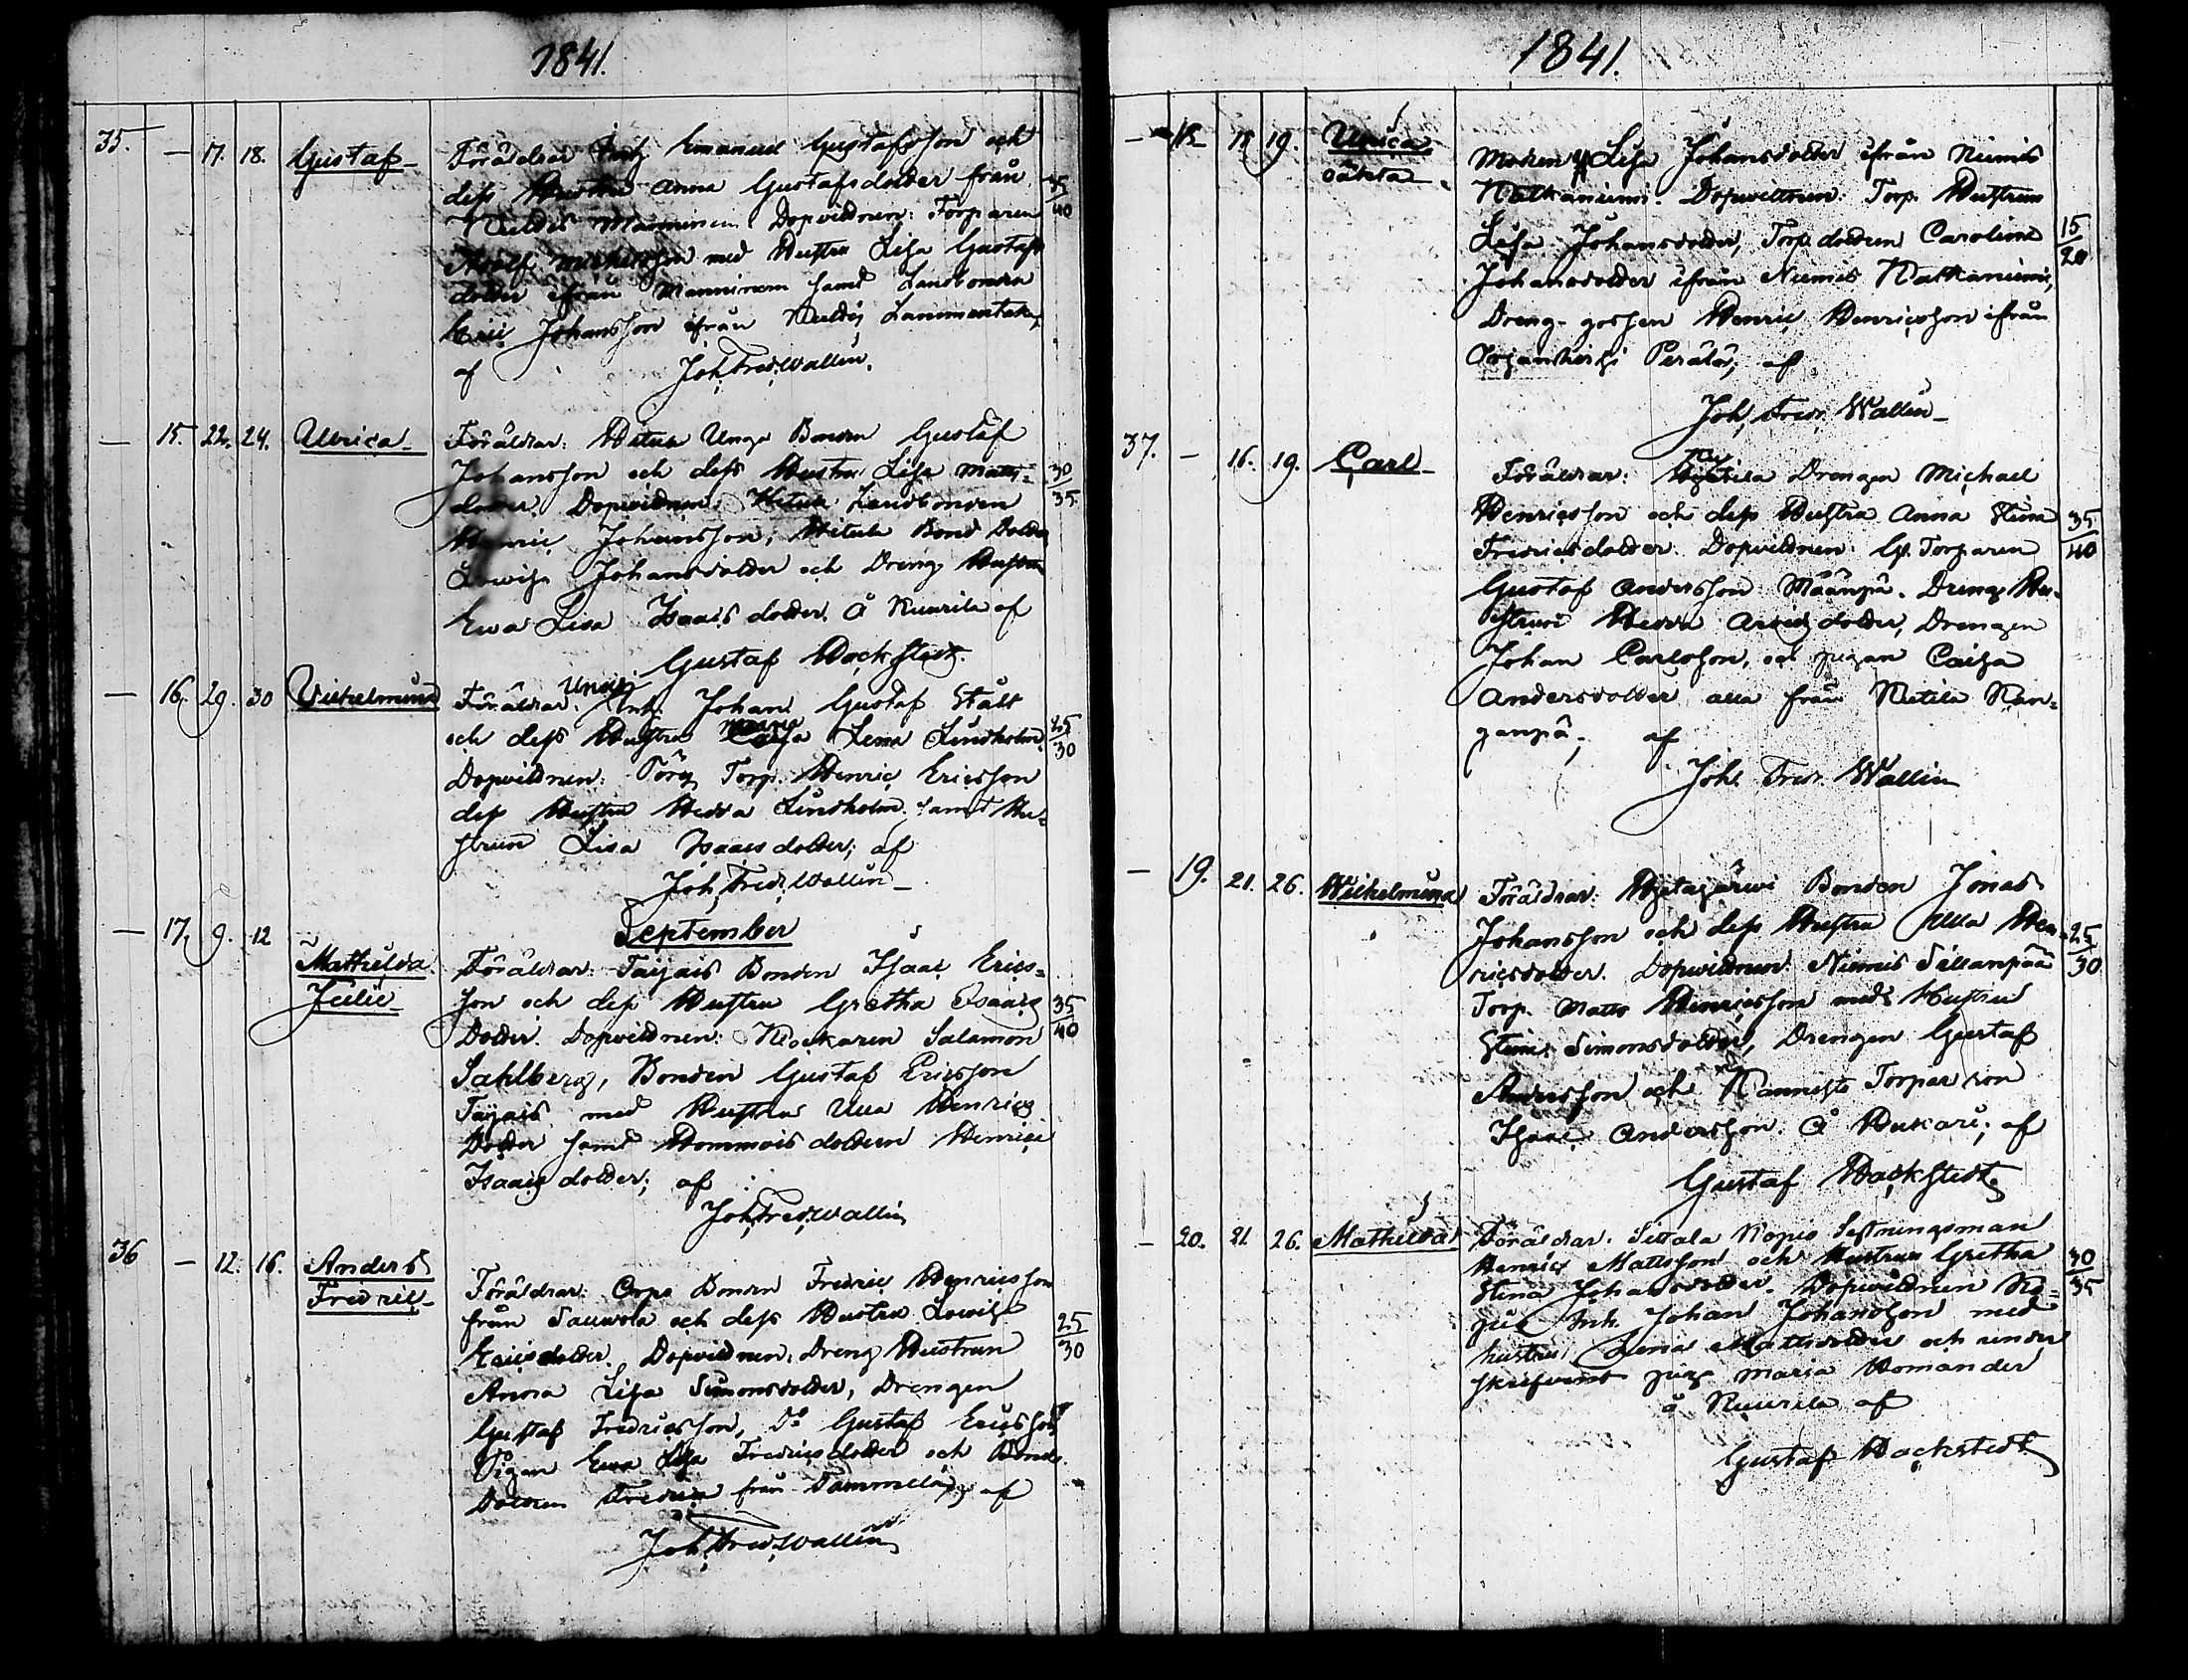 1841.
35. — 17. 18. Gustaf
Föräldrar Emanuel Gustafsson och
dess Hustru Anna Gustafsdotter från
Manninen Dopvittnen: Torparen
Adolf med Hustru Lisa Gustafs
dotter ifrån Manninen samt Landbonden
Eric Johansson ifrån
af Joh. Fred. Wallin.
45/40
— 15. 22. 24. Ulrica
Föräldrar: Unga Bonden Gustaf
Johansson och dess Hustru Lisa Matts-
dotter. Dopvittnen: Landbonden
Henric Johansson, Bond Dotter
Lovisa Johansdotter och Dreng Hustrun
Eva Lisa Isaacsdotter. Å Kuurila af
Gustaf Hockstedt.
30/35
— 16. 29. 30 Vilhelmina
Föräldrar: Inh. Johan Gustaf Stålt
och dess Hustru Maria Lena Lindholm.
Dopvittnen: Torp. Henric Ericsson
dess Hustru Hedda Lindholm samt Hu-
strun Lisa Isaacsdotter; af
Joh. Fred. Wallin
25/30
September
— 17. 9. 12 Mathilda
Julie
Föräldrar: Bonden Isaac Erics-
son och dess Hustru Gretha Isaacs
Dotter. Dopvittnen: Klockaren Salamon
Sahlberg, Bonden Gustaf Ericsson
med Hustru Ulla Henrics
Dotter samt dottern Henrica
Isaacsdotter; af
Joh. Fred. Wallin
35/40
36 — 12. 16. Anders
Fredric
Föräldrar: Orpo Bonden Fredric Henricsson
från Sauvola och dess Hustru Lovisa
Ericsdotter. Dopvittnen: Dreng Hustrun
Anna Lisa Simonsdotter, Drengen
Gustaf Fredricsson, Do Gustaf Ericsson
Pigan Eva Lisa Fredricsdotter och Bonde
Dottern från Tammela, af
Joh. Fred. Wallin
25/30
1841.
— 18 15 19. Ulrica
oäkta
Modren Lisa Johansdotter ifrån Niemis
Natkaniemi. Dopvittnen: Torp. Hustrun
Lisa Johansdotter, Torp. dottren Carolina
Johansdotter ifrån Niemis Natkaniemi,
Dreng-gossen Henric Henricsson ifrån
Perälä; af
Joh. Fredr. Wallin
15/20
37. — 16. 19. Carl
Föräldrar: Drengen Michael
Henricsson och dess Hustru Anna Stina
Fredricsdotter. Dopvittnen: Torparen
Gustaf Andersson Määnpä. Dreng Hu-
strun Hedda Arvidsdotter, Drengen
Johan Carlsson, och pigan Caisa
Andersdotter alla från
ganpä; af
Joh. Fredr. Wallin
35/40
— 19. 21. 26. Wilhelmina
Föräldrar: Bonden Jonas
Johansson och dess Hustru Ulla Hen-
ricsdotter. Dopvittnen: Niemis Sillanpää
Torp. Matts Henricsson med Hustru
Stina Simonsdotter, Drengen Gustaf
Andersson och Torpar son
Isaac Andersson. Å af
Gustaf Hockstedt
25/30
— 20. 21. 26. Mathilda
Föräldrar: Sittala
Henric Mattsson och Hustrun Gretha
Stina Johansdotter. Dopvittnen
Inh. Johan Johansson med
hustru Lena Mattsdotter och under
skrifvens piga Maria Homander
å Kuurila af
Gustaf Hockstedt
30/35